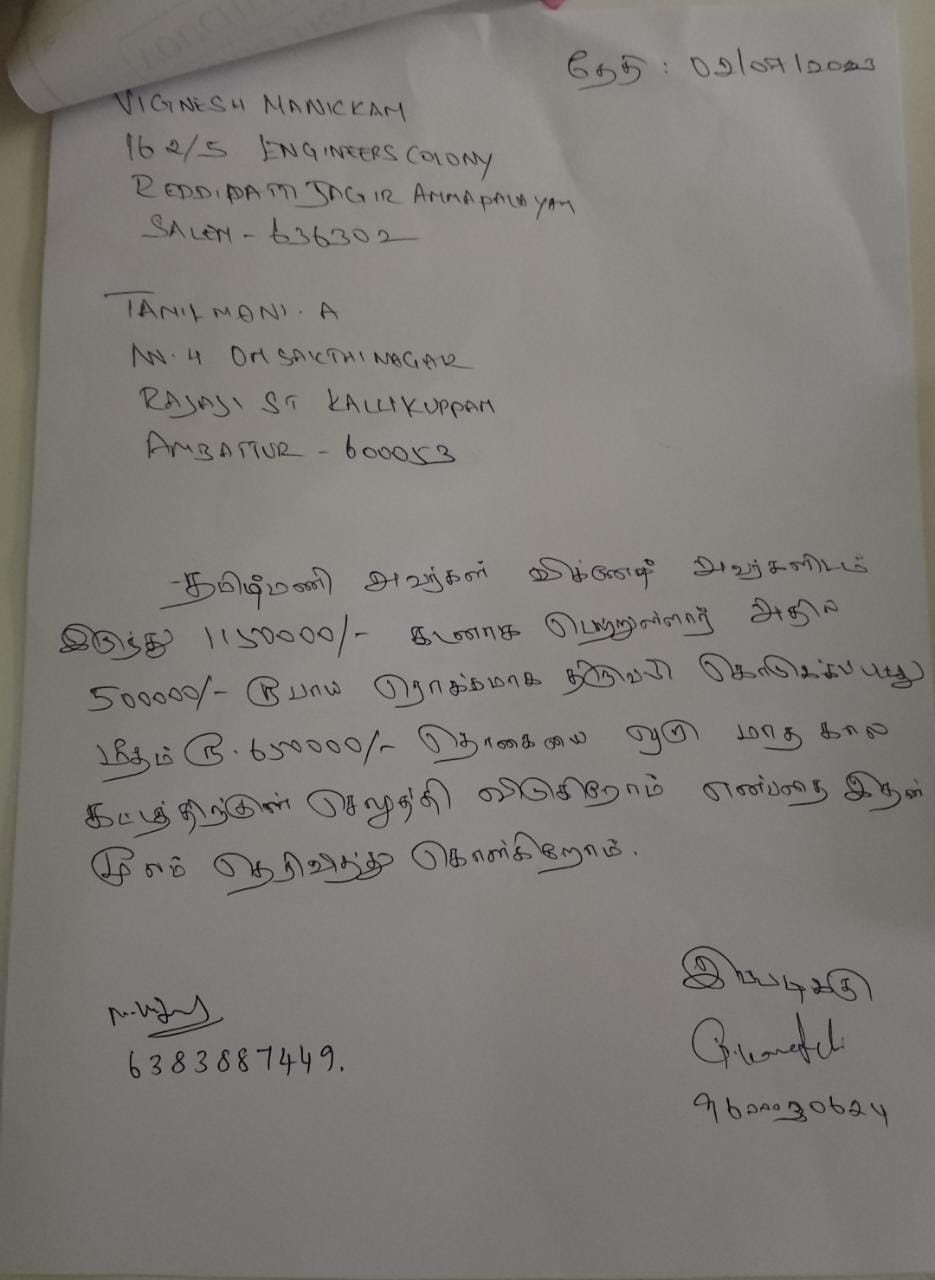 தேதி : 02/07/2023
VIGNESH MANICKAM
162/5 ENGINEERS COLONY
REDDIPATTI JAGIR AMMAPALAYAM
SALEM - 636302
TAMILMANI. A
NO. 4 OM SAKTHI NAGAR
RAJAJI ST KALLIKUPPAM
AMBATTUR - 600053
தமிழ்மணி அவர்கள் விக்னேஷ் அவர்களிடம்
இருந்து 1150000/- கடனாக பெற்றுள்ளார் அதில்
500000/- ரூபாய் ரொக்கமாக கொடுக்கப்பட்டது
மீதம் ரூ. 650000/- தொகையை ஒரு மாத கால
கட்டத்திற்குள் செலுத்தி விடுகிறோம் என்பதை இதன்
மூலம் தெரிவித்து கொள்கிறோம்.
இப்படிக்கு
6383887449.